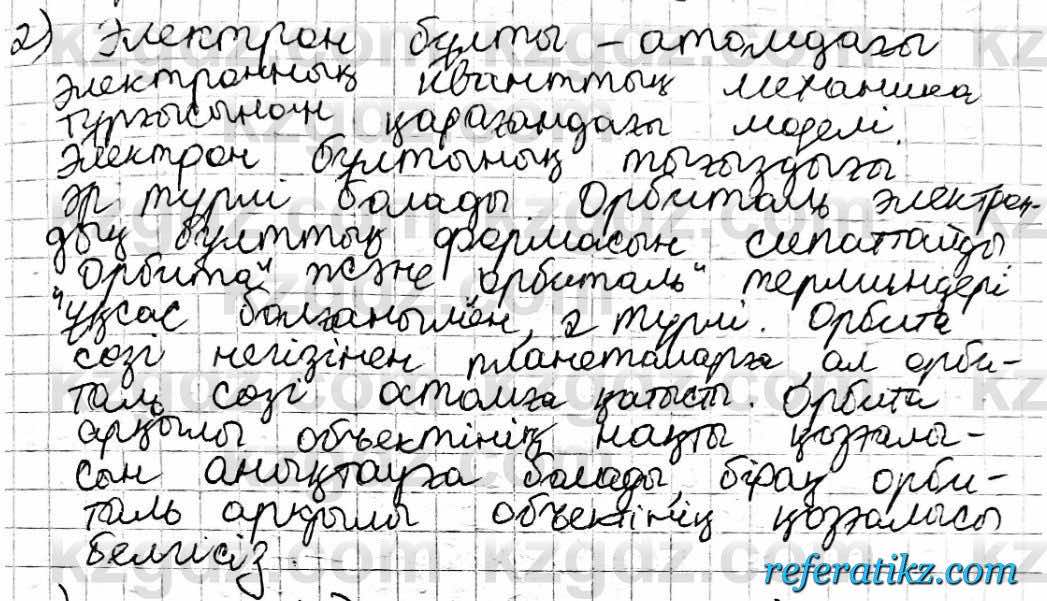 2) Электрон бұлты – атомдағы
электронның кванттық механика
тұрғысынан қарағандағы моделі.
Электрон бұлтының тығыздығы
әр түрлі болады. Орбиталь электрон-
дық бұлттың формасын сипаттайды
"Орбита" және "орбиталь" терминдері
ұқсас болғанымен, 2 түрлі. Орбита
сөзі негізінен планеталарға, ал орби-
таль сөзі атомға қатысты. Орбита
арқылы объектінің нақты қозғалы-
сын анықтауға болады, бірақ орби-
таль арқылы объектінің қозғалысы
белгісіз.
referatikz.com